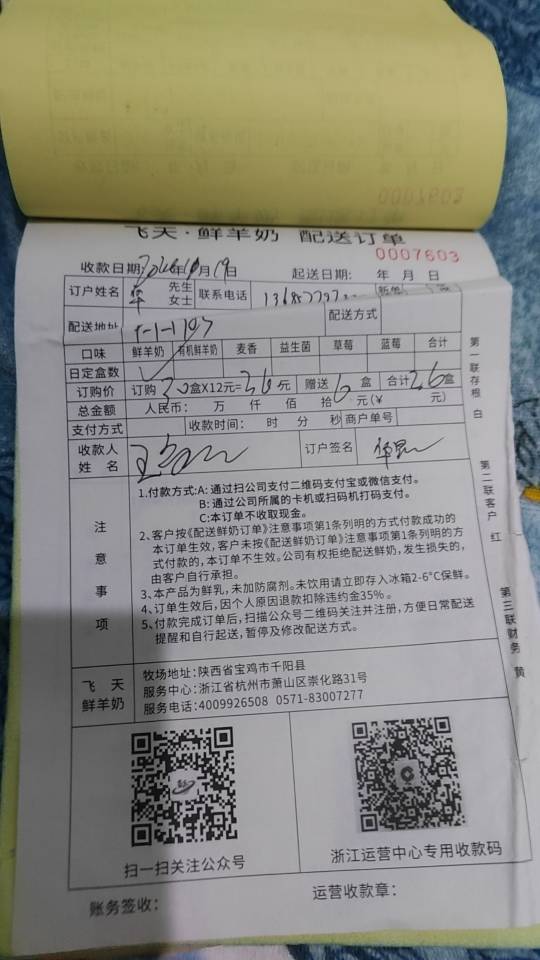 0007603
飞天·鲜羊奶 配送订单
0007603
收款日期: 年10月19日 起送日期: 年 月 日
订户姓名 先生 女士 联系电话
配送地址 配送方式
口味 鲜羊奶 有机鲜羊奶 麦香 益生菌 草莓 蓝莓 合计
日定盒数
订购价 订购 盒X12元= 元 赠送 6 盒 合计 盒
总金额 人民币: 万 仟 佰 拾 元(¥ 元)
支付方式 收款时间: 时 分 秒 商户单号
收款人姓名 订户签名
注意事项
1.付款方式:A: 通过扫公司支付二维码支付宝或微信支付。
B: 通过公司所属的卡机或扫码机打码支付。
C:本订单不收取现金。
2、客户按《配送鲜奶订》注意事项第1条列明的方式付款成功的
本订单生效,客户未按《配送鲜奶订》注意事项第1条列明的方
式付款的,本订单不生效。公司有权拒绝配送鲜奶,发生损失的,
由客户自行承担。
3、本产品为鲜乳,未加防腐剂。未饮用请立即存入冰箱2-6°C保鲜。
4、订单生效后,因个人原因退款扣除违约金35%。
5、付款完成订单后,扫描公众号二维码关注并注册,方便日常配送
提醒和自行起送,暂停及修改配送方式。
飞天
鲜羊奶
牧场地址:陕西省宝鸡市千阳县
服务中心:浙江省杭州市萧山区崇化路31号
服务电话:4009926508 0571-83007277
扫一扫关注公众号
浙江运营中心专用收款码
账务签收:
运营收款章:
第一联存根 白
第二联客户 红
第三联财务 黄